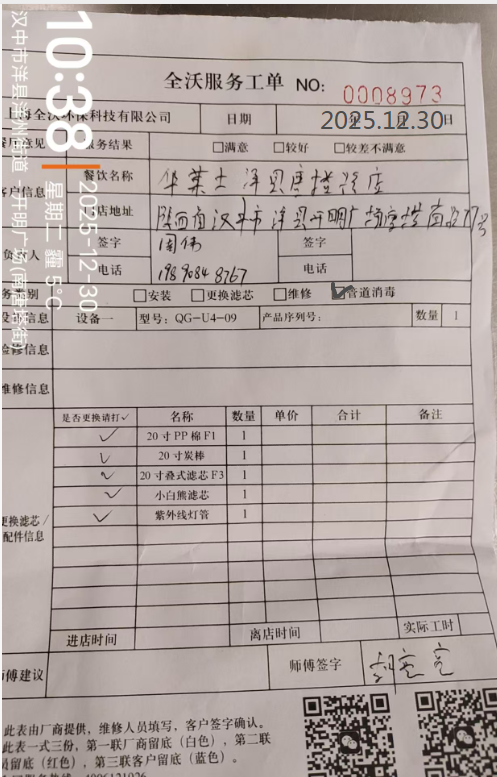 10:38
2025-12-30
星期二 霾 5℃
汉中市洋县洋州街道
开明广场(南唐塔街)
全沃服务工单 NO: 0008973
上海全沃环保科技有限公司 日期 2025.12.30
餐厅意见 服务结果 □满意 □较好 □较差不满意
客户信息 餐饮名称 华莱士洋县唐塔路店
门店地址 陕西省汉中市洋县开明广场唐塔南路
负责人 签字 周伟 签字
电话 198 9084 8767 电话
服务类别 □安装 □更换滤芯 □维修 ☑管道消毒
设备信息 设备一 型号: QG-U4-09 产品序列号: 数量 1
检修信息
维修信息
更换滤芯/配件信息 是否更换请打✓ 名称 数量 单价 合计 备注
✓ 20寸PP棉F1 1
✓ 20寸炭棒 1
✓ 20寸叠式滤芯F3 1
✓ 小白熊滤芯 1
✓ 紫外线灯管 1
进店时间 离店时间 实际工时
师傅建议 师傅签字
此表由厂商提供，维修人员填写，客户签字确认。
此表一式三份，第一联厂商留底（白色），第二联
员留底（红色），第三联客户留底（蓝色）。